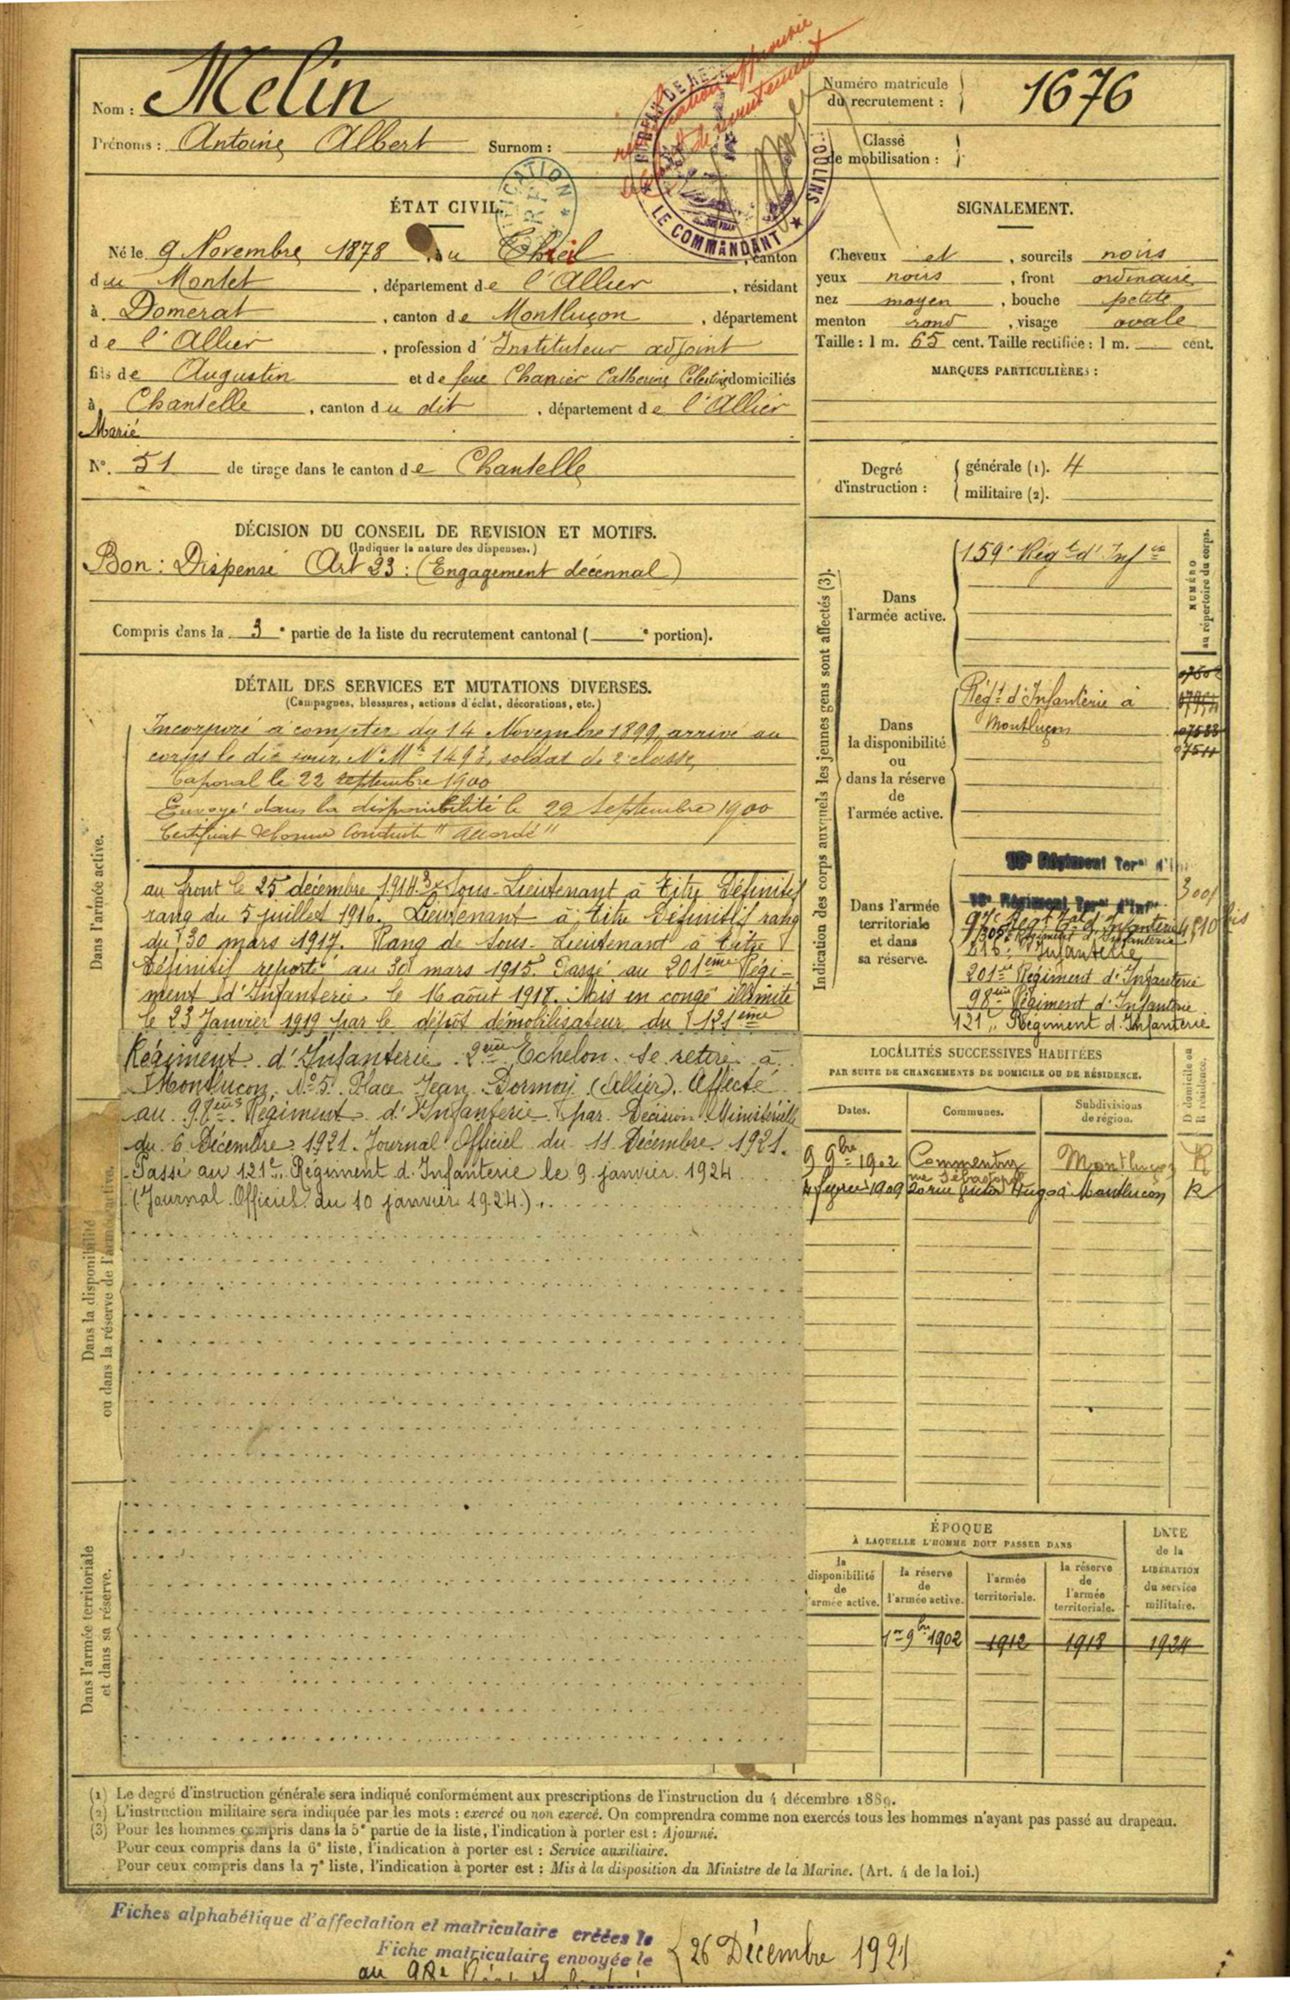 Nom : Melin
Prénoms : Antoine Albert Surnom :
Numéro matricule
du recrutement : 1676
Classe
de mobilisation :
rectification approuvée
LE COMMANDANT
ÉTAT CIVIL.
Né le 9 Novembre 1878 au Theil, canton
du Montet, département de l'Allier, résidant
à Domerat, canton de Montluçon, département
de l'Allier, profession d'Instituteur adjoint
fils de Augustin et de feue Chanier Catherine Célestine domiciliés
à Chantelle, canton du dit, département de l'Allier
Marié
N°. 51 de tirage dans le canton de Chantelle
SIGNALEMENT.
Cheveux et, sourcils noirs
yeux noirs, front ordinaire
nez moyen, bouche petite
menton rond, visage ovale
Taille : 1 m. 65 cent. Taille rectifiée : 1 m. cent.
MARQUES PARTICULIÈRES :
Degré
d'instruction :
générale (1). 4
militaire (2).
DÉCISION DU CONSEIL DE REVISION ET MOTIFS.
(Indiquer la nature des dispenses.)
Bon : Dispensé Art 23 : (Engagement décennal)
Compris dans la 3e partie de la liste du recrutement cantonal ( e portion).
DÉTAIL DES SERVICES ET MUTATIONS DIVERSES.
(Campagnes, blessures, actions d'éclat, décorations, etc.)
Dans l'armée active.
Incorporé à compter du 14 Novembre 1899, arrivé au
corps le dit jour, N° Mle 1493, soldat de 2e classe,
Caporal le 22 septembre 1900
Envoyé dans la disponibilité le 22 septembre 1900
Certificat de bonne Conduite "accordé"
au front le 25 décembre 1914. Sous-Lieutenant à titre définitif
rang du 5 juillet 1916. Lieutenant à titre définitif rang
du 30 mars 1917. Rang de Sous-Lieutenant à titre
définitif reporté au 30 mars 1915. Passé au 201ème Régi-
ment d'Infanterie le 16 août 1918. Mis en congé illimité
le 23 Janvier 1919 par le dépôt démobilisateur du 121ème
Régiment d'Infanterie 2ème Echelon. Se retire à
Montluçon, N° 5 Place Jean Dormoy (Allier). Affecté
au 98ème Régiment d'Infanterie par Décision Ministérielle
du 6 Décembre 1921. Journal Officiel du 11 Décembre 1921.
Passé au 121e Régiment d'Infanterie le 9 janvier 1924
(Journal Officiel du 10 janvier 1924).
Dans la disponibilité
ou dans la réserve de l'armée active.
Dans l'armée territoriale
et dans sa réserve.
Indication des corps auxquels les jeunes gens sont affectés (3).
NUMÉRO
au répertoire du corps.
Dans
l'armée active.
159e Régt d'Infie
Dans
la disponibilité
ou
dans la réserve
de
l'armée active.
Régt d'Infanterie à
Montluçon
07511
Dans l'armée
territoriale
et dans
sa réserve.
Régiment Teral d'Inf
97e Régt Tal d'Infanterie
Infanterie
201e Régiment d'Infanterie
98ème Régiment d'Infanterie
121e Régiment d'Infanterie
LOCALITÉS SUCCESSIVES HABITÉES
PAR SUITE DE CHANGEMENTS DE DOMICILE OU DE RÉSIDENCE.
D domicile ou
R résidence.
Dates. Communes. Subdivisions
de région.
9 9bre 1902 Commentry Montluçon R
rue Sébastopol
1909 20 rue Victor Hugo à Montluçon R
ÉPOQUE
À LAQUELLE L'HOMME DOIT PASSER DANS
DATE
de la
LIBÉRATION
du service
militaire.
la
disponibilité
de
l'armée active.
la réserve
de
l'armée active.
l'armée
territoriale.
la réserve
de
l'armée
territoriale.
1er 9bre 1902 1912 1918 1924
(1) Le degré d'instruction générale sera indiqué conformément aux prescriptions de l'instruction du 4 décembre 1889.
(2) L'instruction militaire sera indiquée par les mots : exercé ou non exercé. On comprendra comme non exercés tous les hommes n'ayant pas passé au drapeau.
(3) Pour les hommes compris dans la 5e partie de la liste, l'indication à porter est : Ajourné.
Pour ceux compris dans la 6e liste, l'indication à porter est : Service auxiliaire.
Pour ceux compris dans la 7e liste, l'indication à porter est : Mis à la disposition du Ministre de la Marine. (Art. 4 de la loi.)
Fiches alphabétique d'affectation et matriculaire créées le
Fiche matriculaire envoyée le 26 Décembre 1921
au 98e